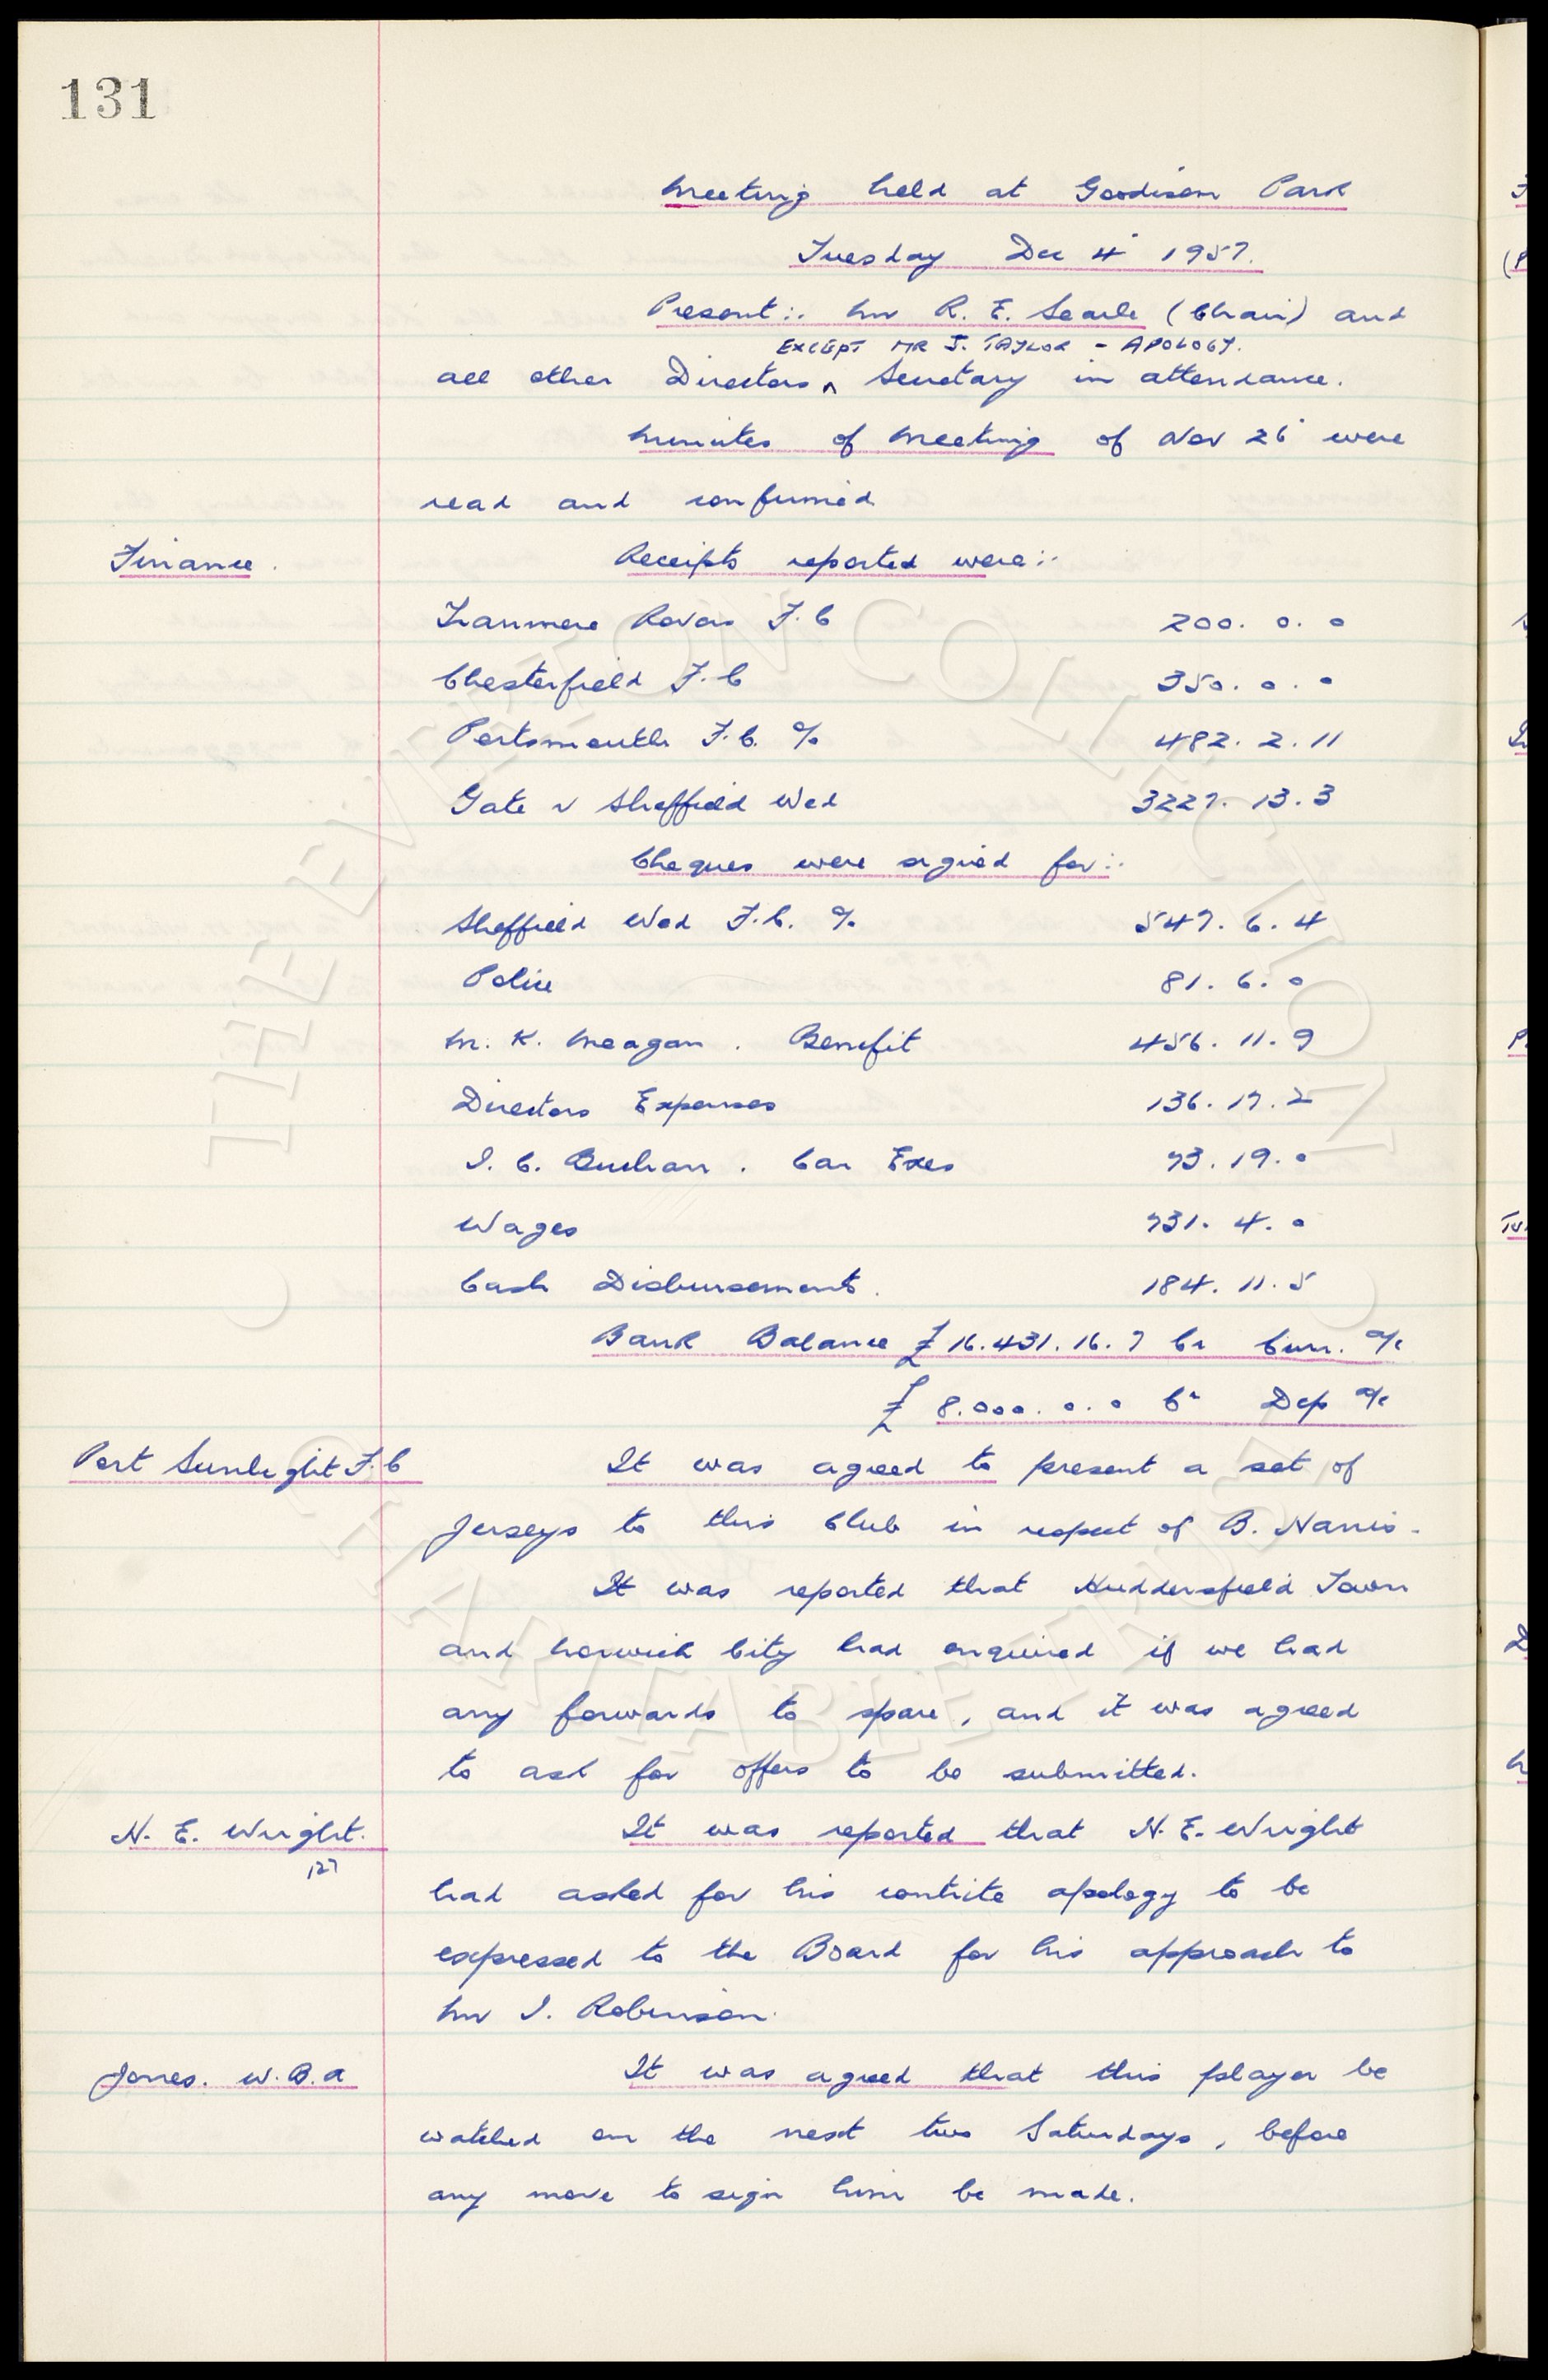 131
Meeting held at Goodison Park
Tuesday Dec 4" 1957.
Present:. Mr R. E. Searle (Chair) and
EXCEPT MR J. TAYLOR - APOLOGY.
all other Directors ^ Secretary in attendance.
Minutes of Meeting of Nov 26" were
read and confirmed
Finance.
Receipts reported were:.
Tranmere Rovers F.C 200. 0. 0
Chesterfield F.C 350. 0. 0
Portsmouth F.C. % 482. 2. 11
Gate v Sheffield Wed 3227. 13. 3
Cheques were signed for:.
Sheffield Wed F.C. % 547. 6. 4
Police 81. 6. 0
M. K. Meagan. Benefit 456. 11. 9
Directors Expenses 136. 17. 2
I. C. Buchan. Car Exes 73. 19. 0
Wages 731. 4. 0
Cash Disbursements. 184. 11. 5
Bank Balance £ 16.431. 16. 7 Cr Curr. a/c
£ 8.000. 0. 0 Cr Dep a/c
Port Sunlight F.C
It was agreed to present a set of
Jerseys to this Club in respect of B. Harris.
It was reported that Huddersfield Town
and Norwich City had enquired if we had
any forwards to spare, and it was agreed
to ask for offers to be submitted.
H. E. Wright.
127
It was reported that H. E. Wright
had asked for his contrite apology to be
expressed to the Board for his approach to
Mr I. Robinson.
Jones. W.B.A
It was agreed that this player be
watched on the next two Saturdays, before
any move to sign him be made.
THE EVERTON COLLECTION
CHARITABLE TRUST